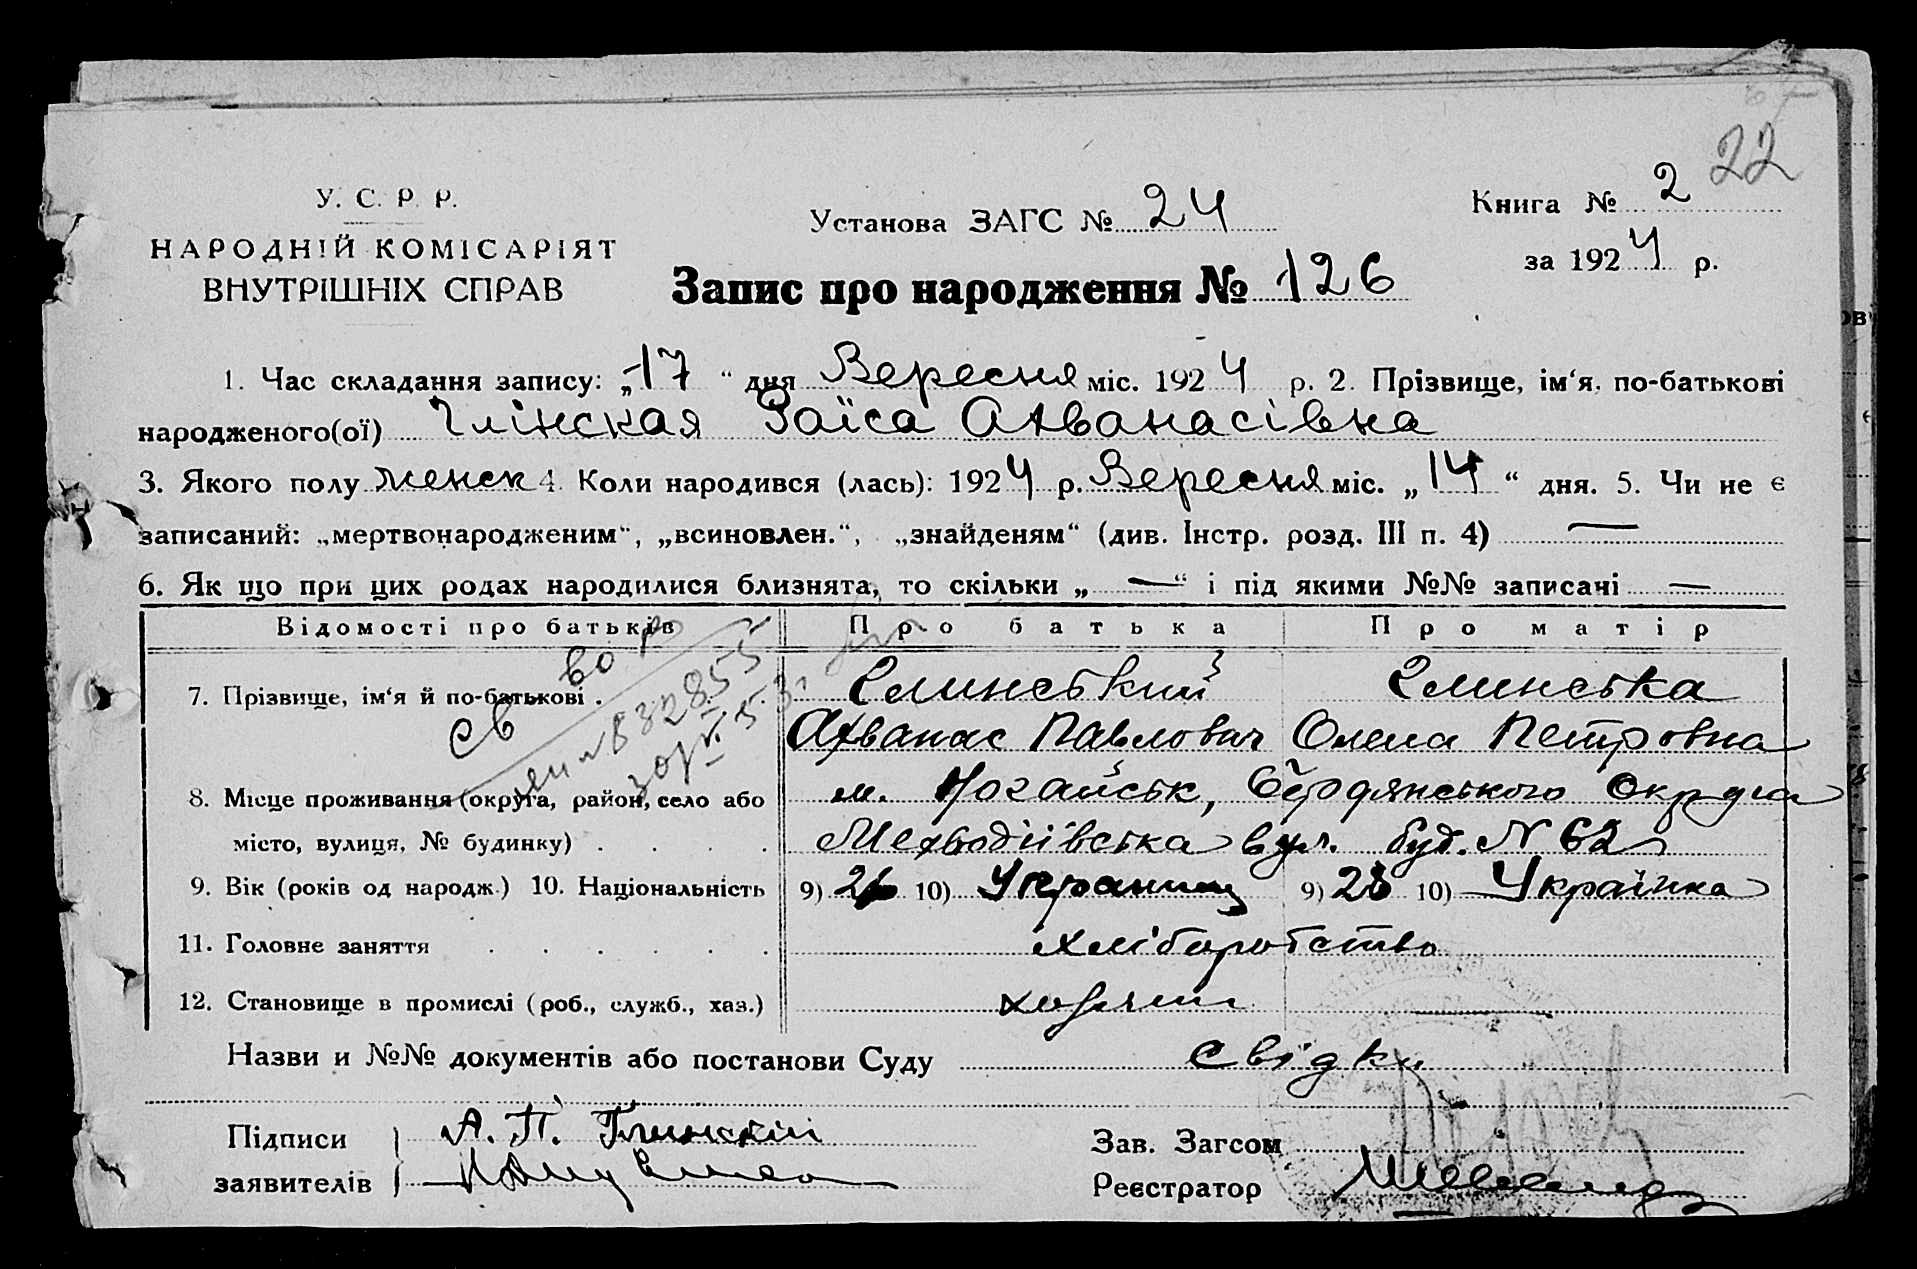 22
У. С. Р. Р.
НАРОДНІЙ КОМІСАРІЯТ
ВНУТРІШНІХ СПРАВ
Установа ЗАГС № 24
Книга № 2
за 1924 р.
Запис про народження № 126
1. Час складання запису: „17“ дня Вересня міс. 1924 р. 2. Прізвище, ім‘я, по-батькові
народженого(ої) Глінская Раїса Афванасівна
3. Якого полу женск 4. Коли народився (лась): 1924 р. Вересня міс. „14“ дня. 5. Чи не є
записаний: „мертвонародженим“, „всиновлен.“, „знайденям“ (див. Інстр. розд. III п. 4) —
6. Як що при цих родах народилися близнята, то скільки „—“ і під якими №№ записані —
Відомості про батьків Про батька Про матір
7. Прізвище, ім‘я й по-батькові . Глинський Глинська
Афванас Павлович Олена Петровна
8. Місце проживання (округа, район, село або м. Ногайськ, Бердянського Округа
місто, вулиця, № будинку) . . . . Мефводіївська вул. буд. N 62
9. Вік (років од народж.) 10. Національність 9) 26 10) Украинец 9) 10) Українка
11. Головне заняття . . . . . . хліборобство
12. Становище в промислі (роб., служб., хаз.)
Назви и №№ документів або постанови Суду Свідки
Підписи А. П. Глинскій
заявителів
Зав. Загсом
Реєстратор